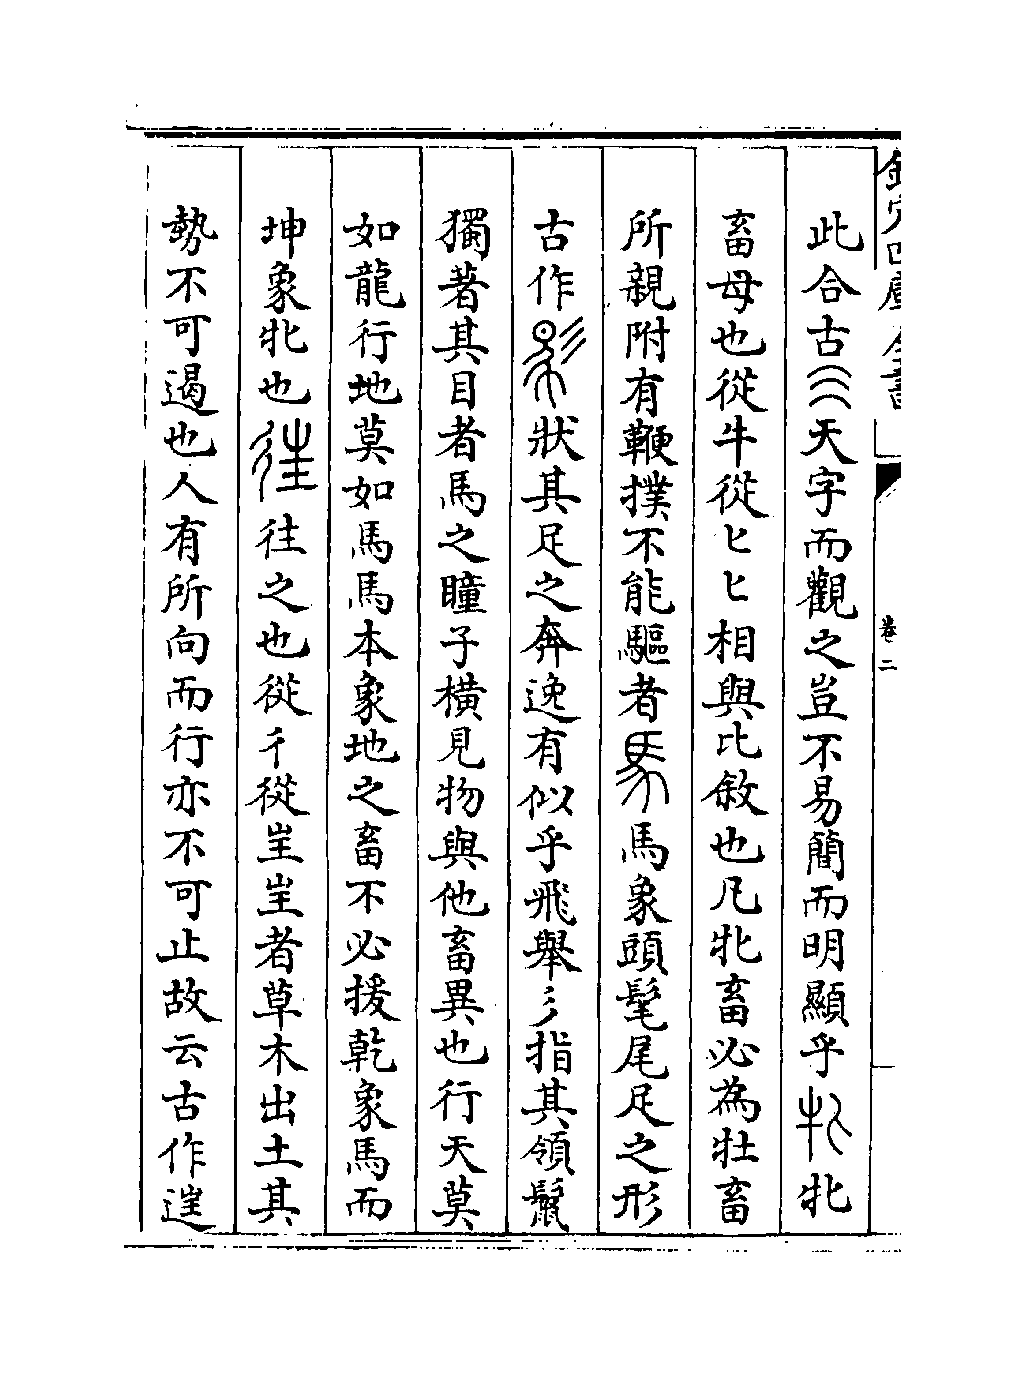 欽定四庫全書
卷二
此合古天字而觀之豈不易簡而明顯乎牝
畜母也從牛從匕匕相與比敘也凡牝畜必為牡畜
所親附有鞭撲不能驅者馬象頭髦尾足之形
古作狀其足之奔逸有似乎飛舉彡指其領鬛
獨著其目者馬之瞳子橫見物與他畜異也行天莫
如龍行地莫如馬馬本象地之畜不必援乾象馬而
坤象牝也往之也從彳從㞷㞷者草木出土其
勢不可遏也人有所向而行亦不可止故云古作𨓹